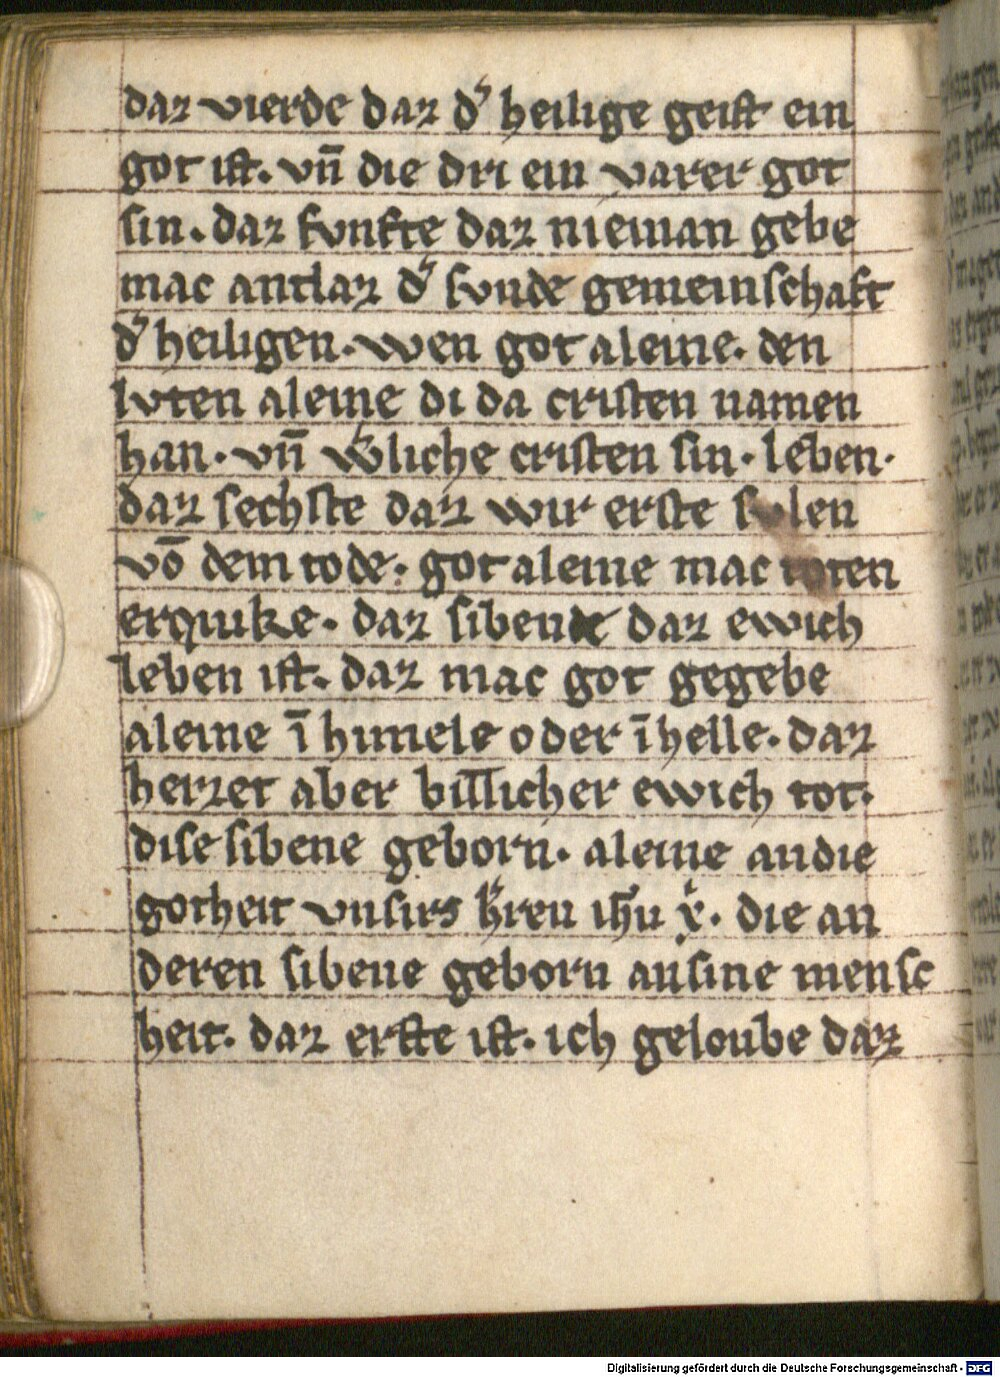 daz vierde daz d' heilige geist ein
got ist. vn̄ die dri ein varer got
sin. daz funfte daz nieman gebe
mac antlaz d' sunde gemeinschaft
d' heiligen. wen got aleine. den
lvten aleine di da cristen namen
han. vn̄ liche cristen sin. leben.
daz sechste daz wir erste sulen
vō dem tode. got aleine mac toten
erquike. daz sibende daz ewich
leben ist. daz mac got gegebe
aleine ī himele oder ī helle. daz
herzet aber billicher ewich tot.
dise sibene geborn. aleine an die
gotheit vnsirs h'ren ih̄u x'. die an
deren sibene geborn an sine mensc
heit. daz erste ist. ich geloube daz
Digitalisierung gefördert durch die Deutsche Forschungsgemeinschaft - DFG